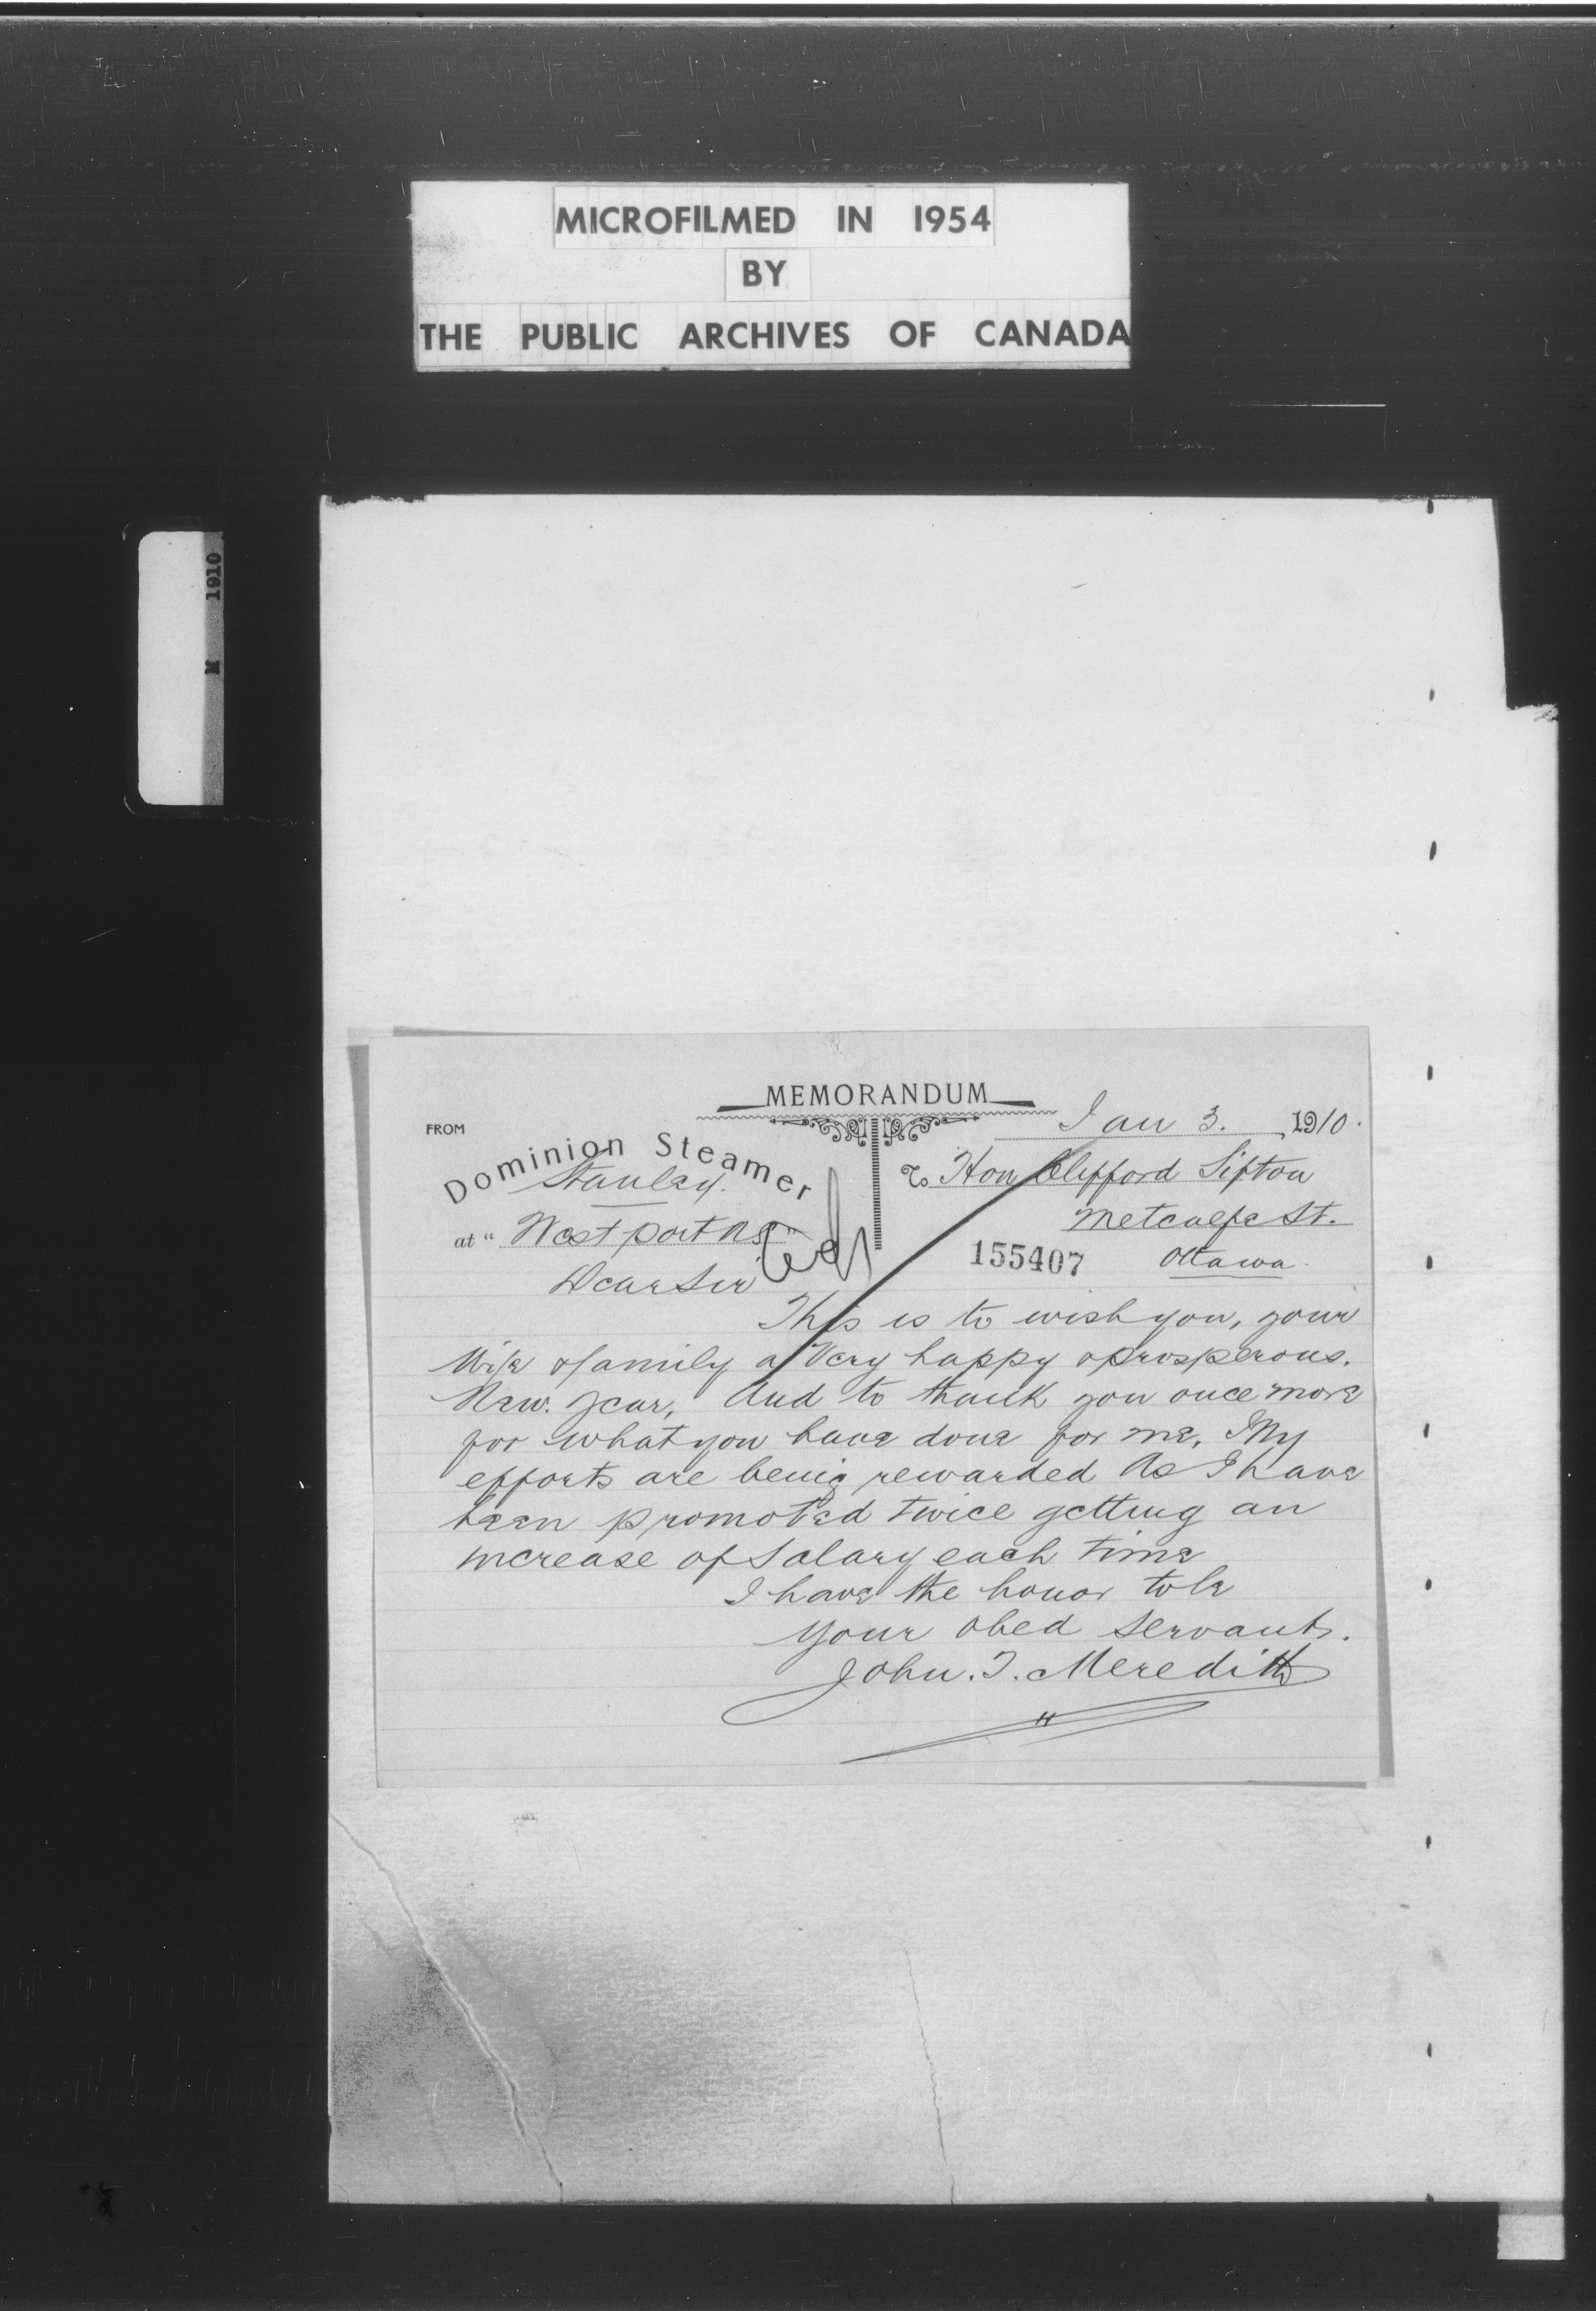 MICROFILMED IN 1954
BY
THE PUBLIC ARCHIVES OF CANADA
M 1910
MEMORANDUM
Jan 3. 1910.
FROM
Dominion Steamer
Stanley.
To Hon Clifford Sifton
Metcalfe St.
at " West port NS "
155407 Ottawa.
Dear Sir
This is to wish you, your
Wife & family a Very happy & prosperous.
New. Year, And to thank you once more
for what you have done for me, My
efforts are being rewarded As I have
been promoted twice getting an
increase of Salary each time
I have the honor to be
Your Obed Servant.
John. T. Meredith